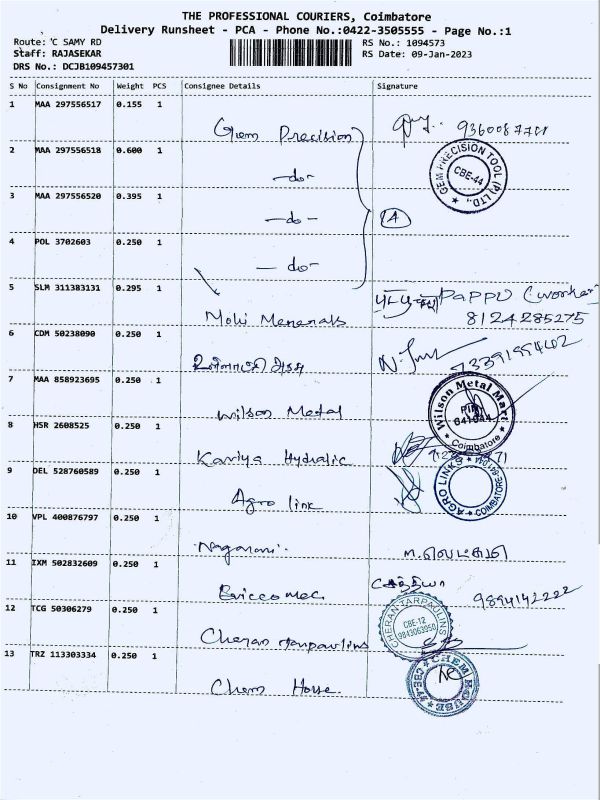 THE PROFESSIONAL COURIERS, Coimbatore
Delivery Runsheet - PCA - Phone No.:0422-3505555 - Page No.:1
Route: 'C SAMY RD
RS No.: 1094573
Staff: RAJASEKAR
RS Date: 09-Jan-2023
DRS No.: DCJB109457301
S No Consignment No Weight PCS Consignee Details Signature
1 MAA 297556517 0.155 1
Gem Precision
2 MAA 297556518 0.600 1
—do-
GEM PRECISION TOOL (P) LTD.,
CBE-44
3 MAA 297556520 0.395 1
—do—
4
4 POL 3702603 0.250 1
— do-
5 SLM 311383131 0.295 1
Pappu (worker)
8124285275
6 CDM 50238090 0.250 1
7 MAA 858923695 0.250 1
Wilson Metal
Wilson Metal Mart
Coimbatore
8 HSR 2608525 0.250 1
Kaviya Hydralic
9 DEL 528760589 0.250 1
Agro link
AGRO LINKS
COIMBATORE
10 VPL 400876797 0.250 1
11 IXM 502832609 0.250 1
9894142222
12 TCG 50306279 0.250 1
Cheran Tarpaulins
CHERAN TARPAULINS
CBE-12
9843063950
13 TRZ 113303334 0.250 1
Chem House
CHEM HOUSE
CBE-44